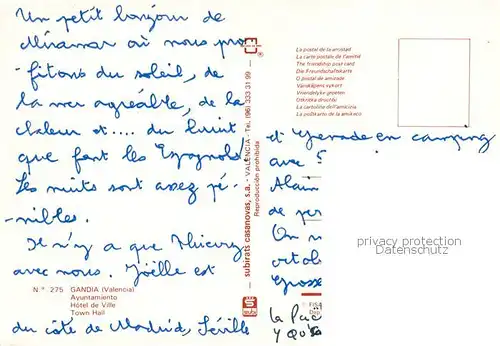 Un petit bonjour de
Miramar où nous pro
fitons du soleil, de
la mer agréable, de la
chaleur et.... du bruit
que font les Espagnols!
Les nuits sont assez pé-
-nibles.
Je n'y a que Thierry
avec nous. Joëlle est
N.º 275 GANDIA (Valencia)
Ayuntamiento
Hôtel de Ville
Town Hall
du côté de Madrid, Séville
subirats casanovas, s.a. - VALENCIA - Te. (96) 333 31 99 -
Reproducción prohibida
La postal de la amistad
La carte postale de l'amitié
The friendship post card
Die Freundschaftskarte
O postal de amizade
Vänskapens vykort
Vriendelijke groeten
La cartolina dell'amicizia
La poŝtkarto de la amikeco
et Grenade en camping
avec
Alain
de per
On
octob
Grosse
privacy protection
Datenschutz
la Pac
y Qu